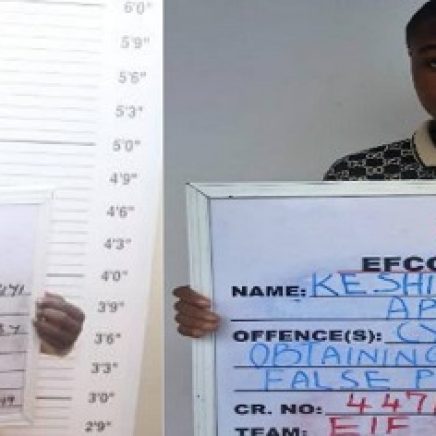 6'0"
5'9"
5'6"
5'3"
5'0"
4'9"
4'6"
4'3"
4'0"
3'9"
3'6"
3'3"
3'0"
2'9"
EFCC
NAME: KESHI
AP
OFFENCE(S): CY
OBTAINING
FALSE P
CR. NO: 447
TEAM: EIF